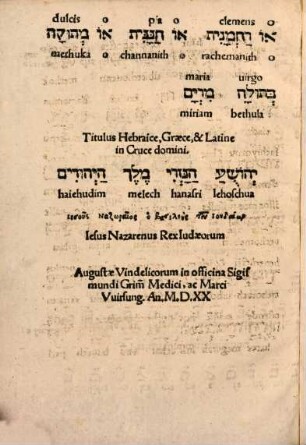 dulcis o pia o clemens o
או רַחְמָנִית או חַנָּנִית או מְתוּקָה
methuka o channanith o rachemanith o
maria uirgo
בְּתוּלָה מִרְיָם
miriam bethula
Titulus Hebraice, Græce, & Latine
in Cruce domini.
יְהוֹשֻׁעַ הַנָּצְרִי מֶלֶךְ הַיְהוּדִים
haiehudim melech hanasri Iehoschua
ιησοῦς Ναζωραῖος ὁ βασιλεὺς τῶν ἰουδαίων
Iesus Nazarenus Rex Iudæorum
Augustæ Vindelicorum in officina Sigis
mundi Grim̄ Medici, ac Marci
Vuirsung. An. M.D.XX